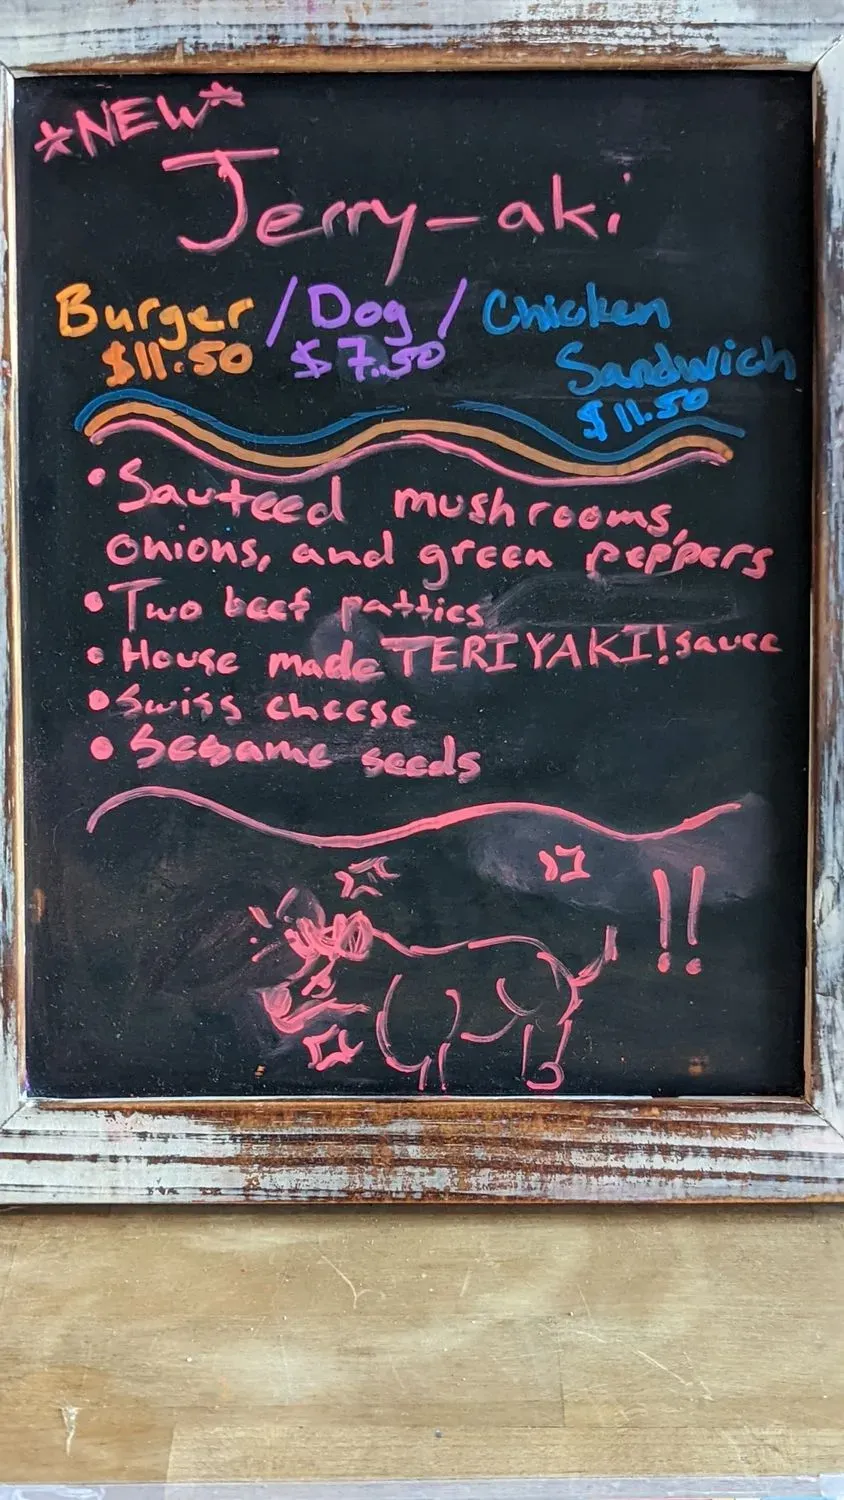 *NEW*
Jerry-aki
Burger / Dog / Chicken
Sandwich
$11.50 $7.50 $11.50
• Sauteed mushrooms,
onions, and green peppers
• Two beef patties
• House made TERIYAKI! sauce
• Swiss cheese
• Sesame seeds
!!